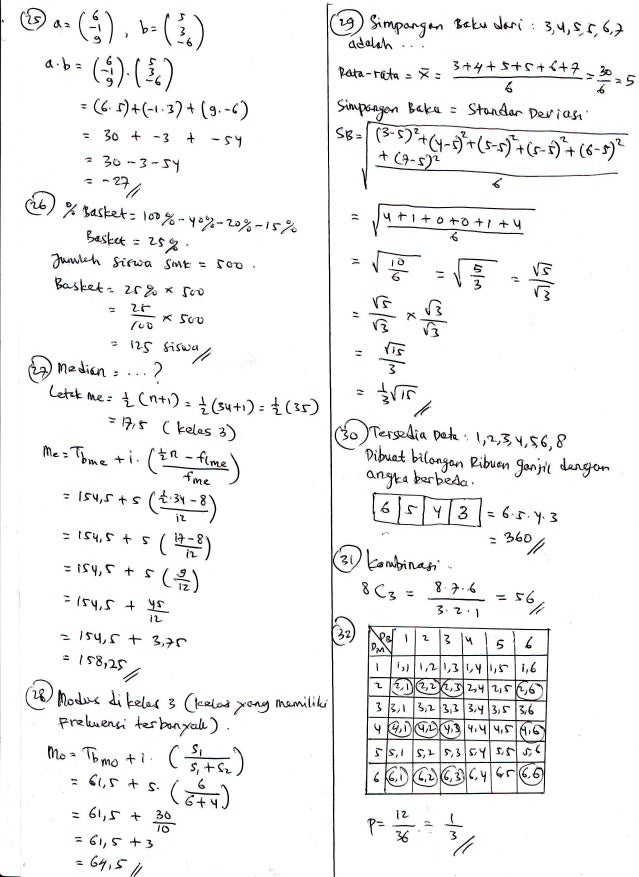 25 a = (6 -1 9), b = (5 3 -6)
a·b = (6 -1 9) . (5 3 -6)
= (6.5)+(-1.3)+(9.-6)
= 30 + -3 + -54
= 30-3-54
= -27
26 % Basket = 100%-40%-20%-15%
Basket = 25%.
Jumlah siswa smk = 500.
Basket = 25% × 500
= 25/100 × 500
= 125 siswa
27 Median = ...?
Letak me = 1/2 (n+1) = 1/2 (34+1) = 1/2 (35)
= 17,5 (kelas 3)
Me = Tbme + i. (1/2 n - fkme / fme)
= 154,5 + 5 (1/2.34 - 8 / 12)
= 154,5 + 5 (17-8 / 12)
= 154,5 + 5 (9/12)
= 154,5 + 45/12
= 154,5 + 3,75
= 158,25
28 Modus di kelas 3 (kelas yang memiliki
frekuensi terbanyak).
Mo = Tbmo + i. (S1 / S1+S2)
= 61,5 + 5. (6 / 6+4)
= 61,5 + 30/10
= 61,5 + 3
= 64,5
29 Simpangan Baku dari : 3,4,5,5,6,7
adalah ...
Rata-rata = x̄ = 3+4+5+5+6+7 / 6 = 30/6 = 5
Simpangan Baku = Standar Deviasi
SB = √((3-5)²+(4-5)²+(5-5)²+(5-5)²+(6-5)²
+ (7-5)² / 6)
= √(4+1+0+0+1+4 / 6)
= √(10/6) = √(5/3) = √5/√3
= √5/√3 × √3/√3
= √15/3
= 1/3 √15
30 Tersedia Data : 1,2,3,4,5,6,8
Dibuat bilangan Ribuan ganjil dengan
angka berbeda.
6 5 4 3 = 6.5.4.3
= 360
31 Kombinasi.
8C3 = 8.7.6 / 3.2.1 = 56
32 DM DB 1 2 3 4 5 6
1 1,1 1,2 1,3 1,4 1,5 1,6
2 2,1 2,2 2,3 2,4 2,5 2,6
3 3,1 3,2 3,3 3,4 3,5 3,6
4 4,1 4,2 4,3 4,4 4,5 4,6
5 5,1 5,2 5,3 5,4 5,5 5,6
6 6,1 6,2 6,3 6,4 6,5 6,6
P = 12/36 = 1/3